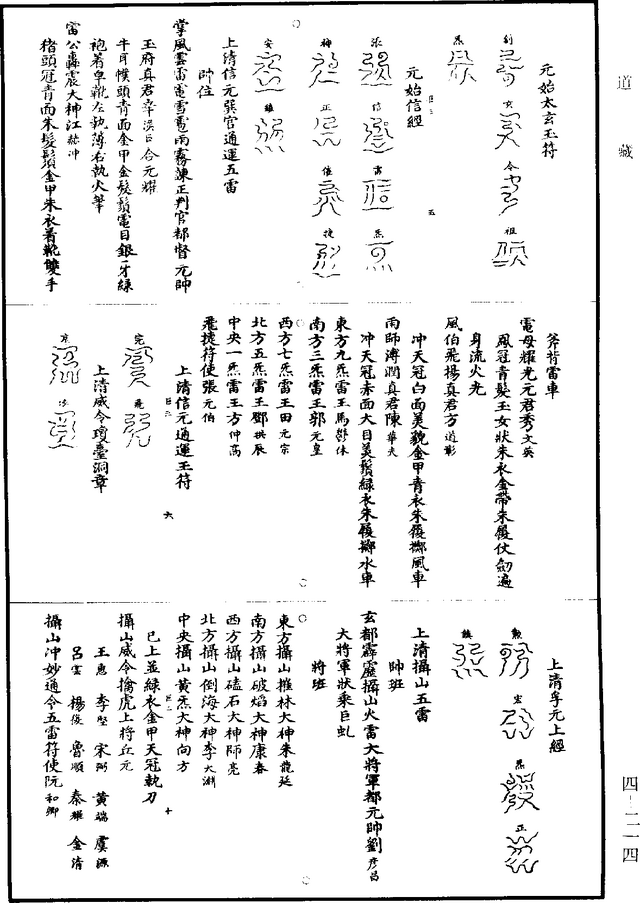 道藏
四-二一四
元始太玄玉符
刻
玄
令
祖
炁
元始信經
張
信
雷
炁
神
正
催
捷
安
鎮
上清信元巽官通運五雷
帥位
掌風雲雷電雪雹雨霧諫正判官都督元帥
玉府真君辛漢臣合元耀
牛耳幞頭青面金甲金髮鬚電目銀牙綠
袍着皁靴左執薄右執火筆
雷公轟震大神江赫冲
猪頭冠青面朱髮鬚金甲朱衣着靴雙手
斧背雷車
電母耀光元君秀文英
鳳冠青髮玉女狀朱衣金帶朱履仗劒遍
身流火光
風伯飛揚真君方道彰
冲天冠白面美貌金甲青衣朱履擲風車
雨師溥潤真君陳華夫
冲天冠赤面大目美鬚綠衣朱履擲水車
東方九炁雷王馬鬱休
南方三炁雷王郭元皇
西方七炁雷王田元宗
北方五炁雷王鄧拱辰
中央一炁雷王方仲高
飛捷符使張元伯
上清信元通運玉符
完
飛
上清威令瓊臺洞章
京
上清孚元上經
勲
宏
炁
正
鎮
上清攝山五雷
帥班
玄都霹靂攝山火雷大將軍都元帥劉彦昌
大將軍狀乘巨虬
將班
東方攝山摧林大神朱龍延
南方攝山破焰大神康春
西方攝山磕石大神師亮
北方攝山倒海大神李大淵
中央攝山黃炁大神向方
已上並綠衣金甲天冠執刀
攝山威令擒虎上將丘元
王惠 李堅 宋弼 黃瑞 虞源
呂雲 楊俊 魯順 秦雄 金清
攝山冲妙通令五雷符使阮和卿